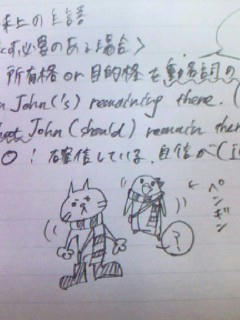 上の主語
必要のある場合>
所有格 or 目的格を動名詞の
John('s) remaining there. (
that John (should) remain there
○! 確信している、自信が(i
ペンギン
?